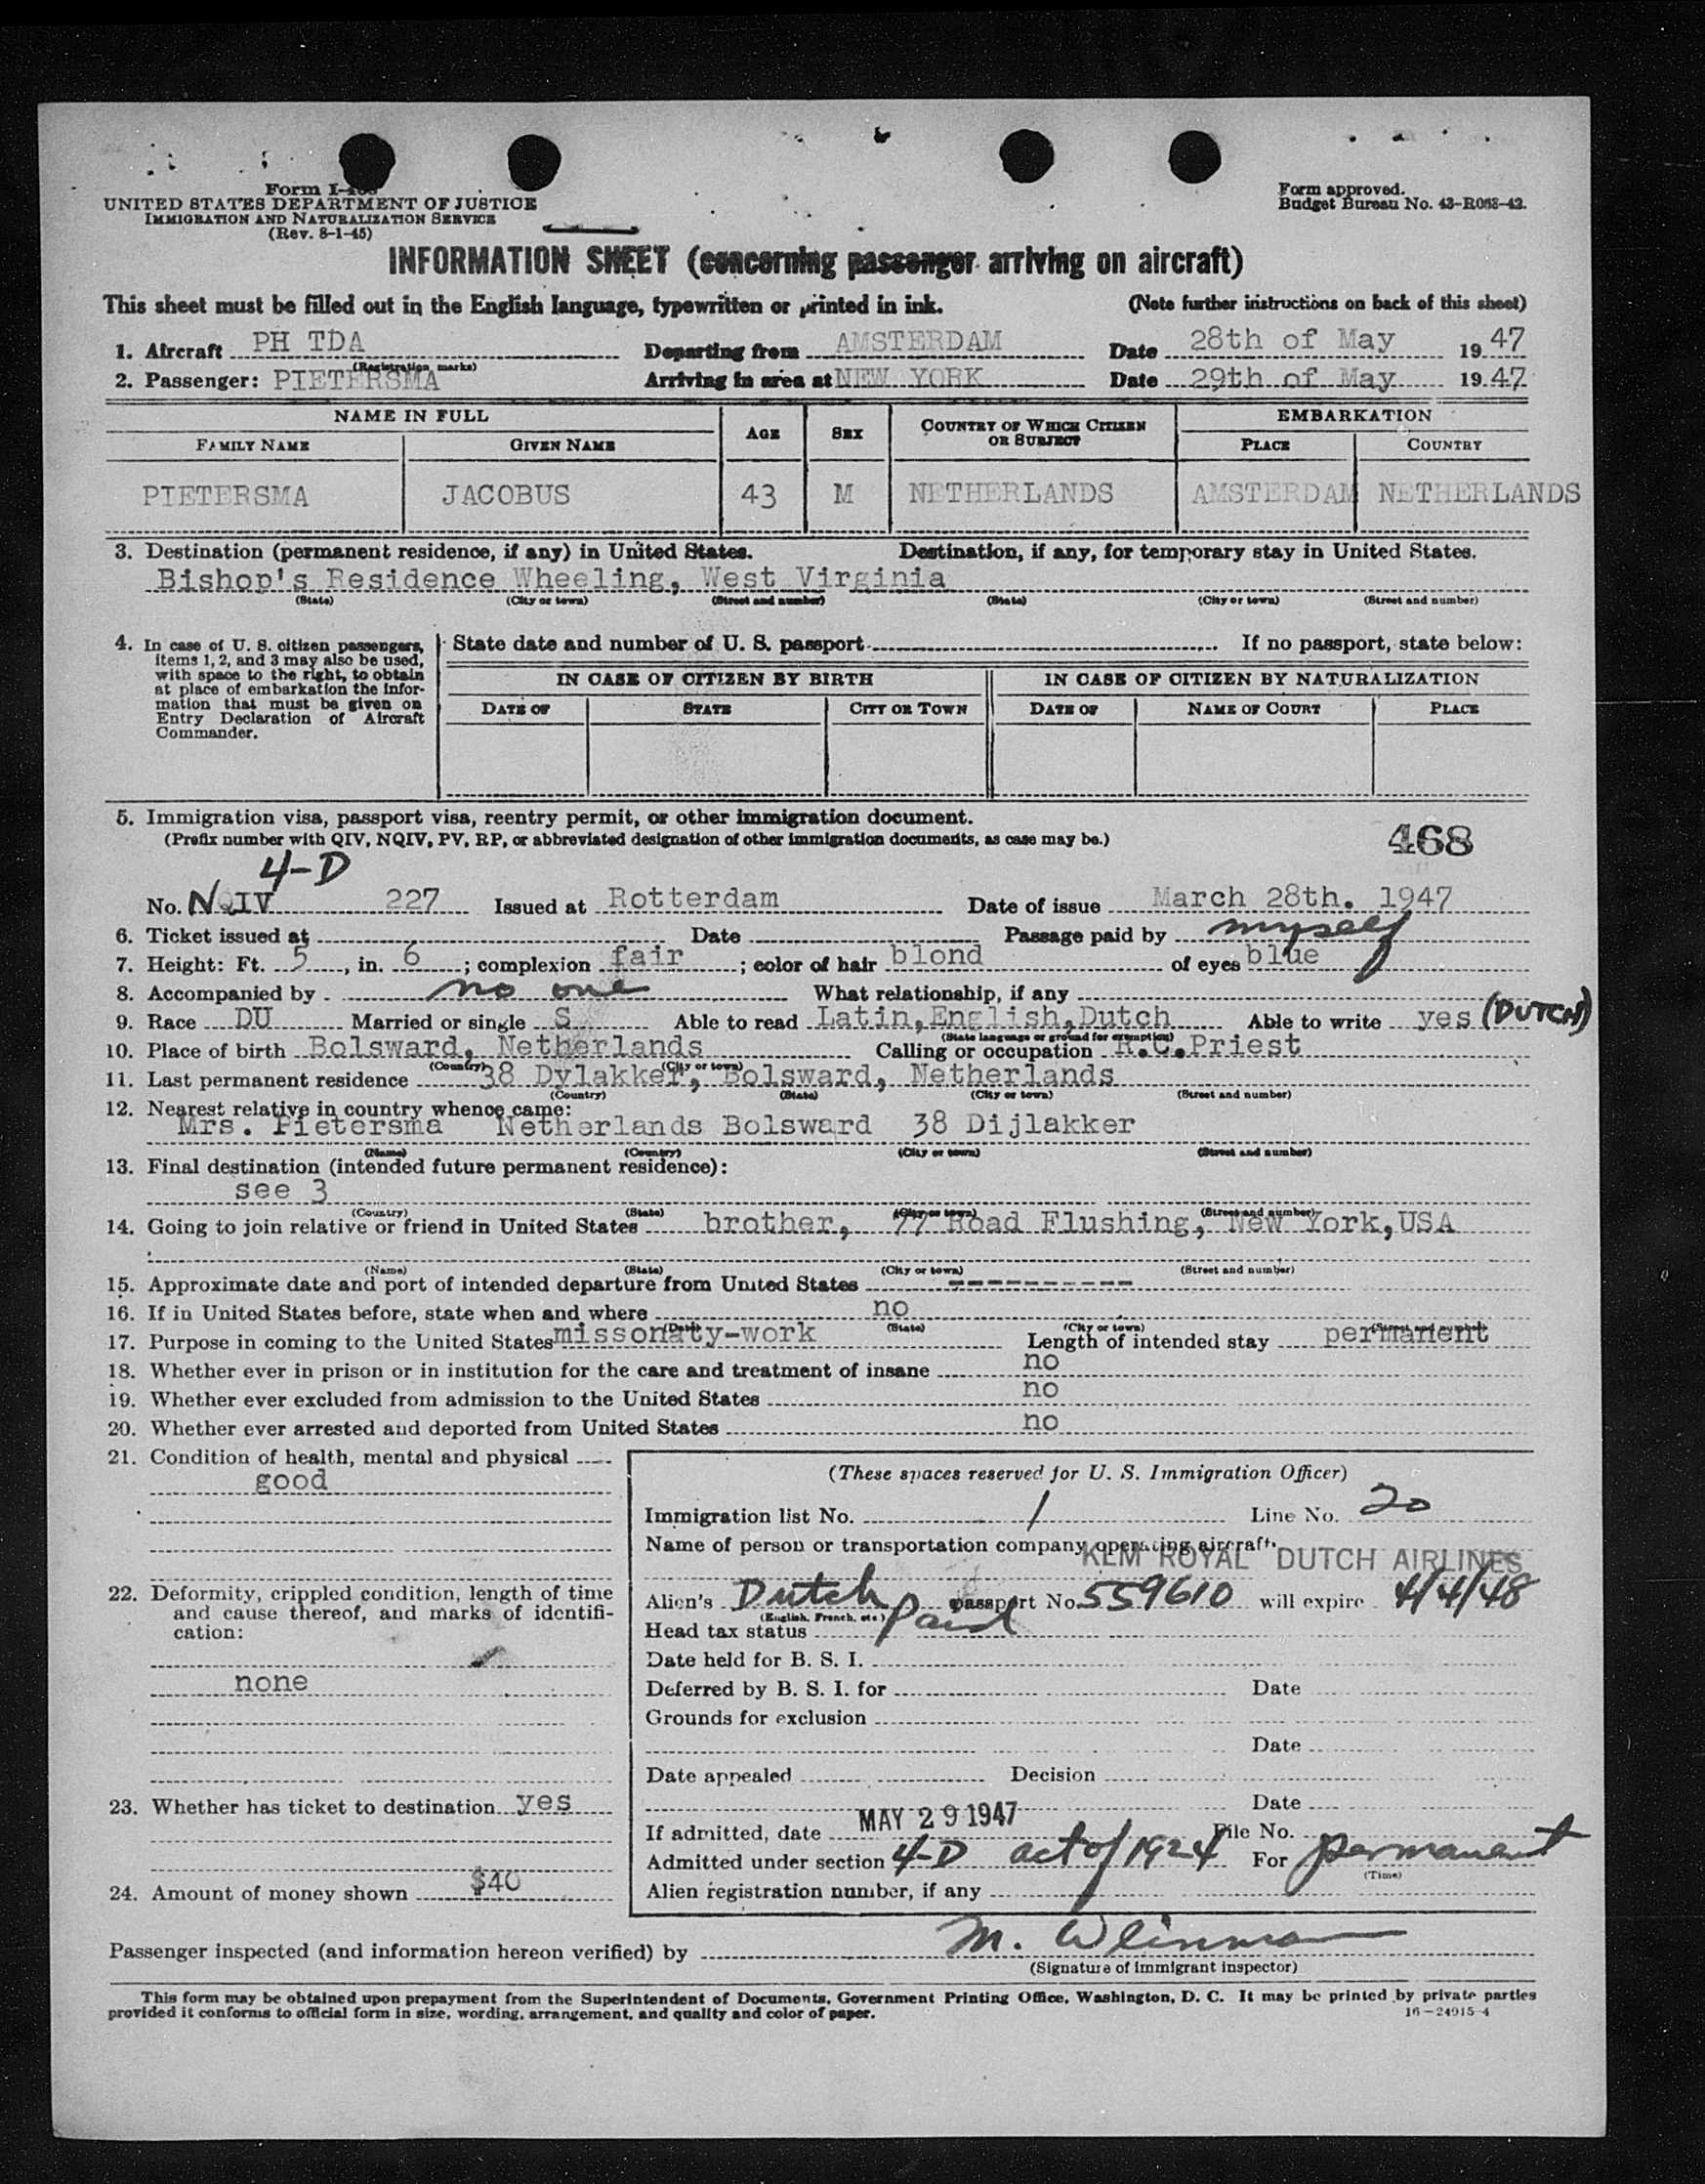 Form I-
UNITED STATES DEPARTMENT OF JUSTICE
IMMIGRATION AND NATURALIZATION SERVICE
(Rev. 8-1-45)
Form approved.
Budget Bureau No. 43-R063-42.
INFORMATION SHEET (concerning passenger arriving on aircraft)
This sheet must be filled out in the English language, typewritten or printed in ink. (Note further instructions on back of this sheet)
1. Aircraft PH TDA Departing from AMSTERDAM Date 28th of May 1947
(Registration marks)
2. Passenger: PIETERSMA Arriving in area at NEW YORK Date 29th of May 1947
NAME IN FULL AGE SEX COUNTRY OF WHICH CITIZEN OR SUBJECT EMBARKATION
FAMILY NAME GIVEN NAME PLACE COUNTRY
PIETERSMA JACOBUS 43 M NETHERLANDS AMSTERDAM NETHERLANDS
3. Destination (permanent residence, if any) in United States. Destination, if any, for temporary stay in United States.
Bishop's Residence Wheeling, West Virginia
(State) (City or town) (Street and number) (State) (City or town) (Street and number)
4. In case of U. S. citizen passengers, items 1, 2, and 3 may also be used, with space to the right, to obtain at place of embarkation the information that must be given on Entry Declaration of Aircraft Commander.
State date and number of U. S. passport If no passport, state below:
IN CASE OF CITIZEN BY BIRTH IN CASE OF CITIZEN BY NATURALIZATION
DATE OF STATE CITY OR TOWN DATE OF NAME OF COURT PLACE
5. Immigration visa, passport visa, reentry permit, or other immigration document.
(Prefix number with QIV, NQIV, PV, RP, or abbreviated designation of other immigration documents, as case may be.) 468
4-D
No. NQIV 227 Issued at Rotterdam Date of issue March 28th. 1947
6. Ticket issued at Date Passage paid by myself
7. Height: Ft. 5, in. 6; complexion fair; color of hair blond of eyes blue
8. Accompanied by no one What relationship, if any
9. Race DU Married or single S Able to read Latin,English,Dutch Able to write yes (DUTCH)
(State language or ground for exemption)
10. Place of birth Bolsward, Netherlands Calling or occupation R.C.Priest
(Country) (City or town)
11. Last permanent residence 38 Dylakker, Bolsward, Netherlands
(Country) (State) (City or town) (Street and number)
12. Nearest relative in country whence came:
Mrs. Pietersma Netherlands Bolsward 38 Dijlakker
(Name) (Country) (City or town) (Street and number)
13. Final destination (intended future permanent residence):
see 3
(Country) (State) (City or town) (Street and number)
14. Going to join relative or friend in United States brother, 77 Road Flushing, New York,USA
(Name) (State) (City or town) (Street and number)
15. Approximate date and port of intended departure from United States ----------
16. If in United States before, state when and where no
(Date) (State) (City or town) (Street and number)
17. Purpose in coming to the United States missonaty-work Length of intended stay permanent
18. Whether ever in prison or in institution for the care and treatment of insane no
19. Whether ever excluded from admission to the United States no
20. Whether ever arrested and deported from United States no
21. Condition of health, mental and physical
good
22. Deformity, crippled condition, length of time
and cause thereof, and marks of identifi-
cation:
none
23. Whether has ticket to destination yes
24. Amount of money shown $40
(These spaces reserved for U. S. Immigration Officer)
Immigration list No. 1 Line No. 20
Name of person or transportation company operating aircraft
KLM ROYAL DUTCH AIRLINES
Alien's Dutch passport No. 559610 will expire 4/4/48
(English, French, etc.)
Head tax status Paid
Date held for B. S. I.
Deferred by B. S. I. for Date
Grounds for exclusion
Date
Date appealed Decision
Date
If admitted, date MAY 29 1947 File No.
Admitted under section 4-D act of 1924 For permanent
(Time)
Alien registration number, if any
Passenger inspected (and information hereon verified) by M.
(Signature of immigrant inspector)
This form may be obtained upon prepayment from the Superintendent of Documents, Government Printing Office, Washington, D. C. It may be printed by private parties
provided it conforms to official form in size, wording, arrangement, and quality and color of paper. 16-24915-4